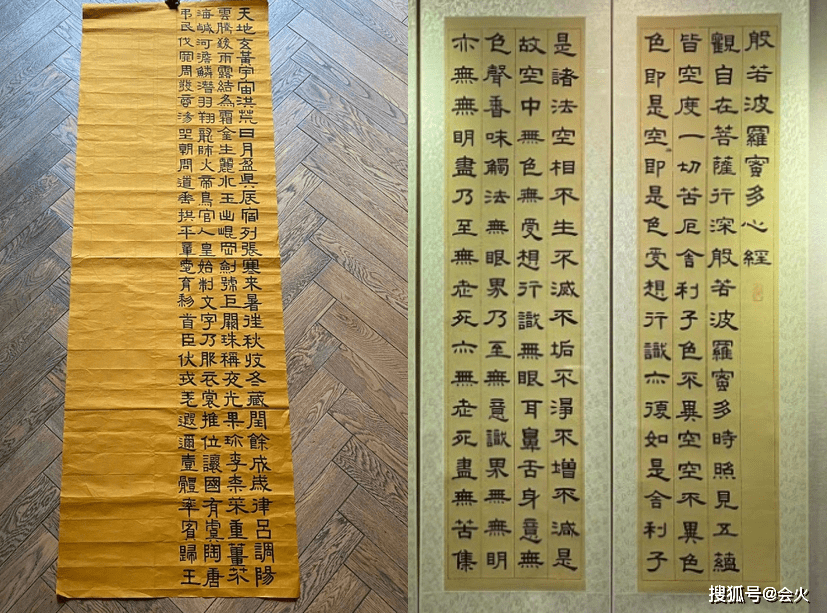 天地玄黃宇宙洪荒日月盈昃辰宿列張寒来暑往秋收冬藏閏餘成歲律呂調陽
雲騰致雨露結為霜金生麗水玉出崐岡劍號巨闕珠稱夜光果珍李柰菜重薑芥
海鹹河澹鱗潛羽翔龍師火帝鳥官人皇始制文字乃服衣裳推位讓國有虞陶唐
弔民伐罪周發殷湯坐朝問道垂拱平章愛育黎首臣伏戎羌遐邇壹體率賓歸王
般若波羅蜜多心經
觀自在菩薩行深般若波羅蜜多時照見五蘊
皆空度一切苦厄舍利子色不異空空不異色
色即是空即是色受想行識亦復如是舍利子
是諸法空相不生不滅不垢不淨不增不減是
故空中無色無受想行識無眼耳鼻舌身意無
色聲香味觸法無眼界乃至無意識界無無明
亦無無明盡乃至無老死亦無老死盡無苦集
搜狐号@会火